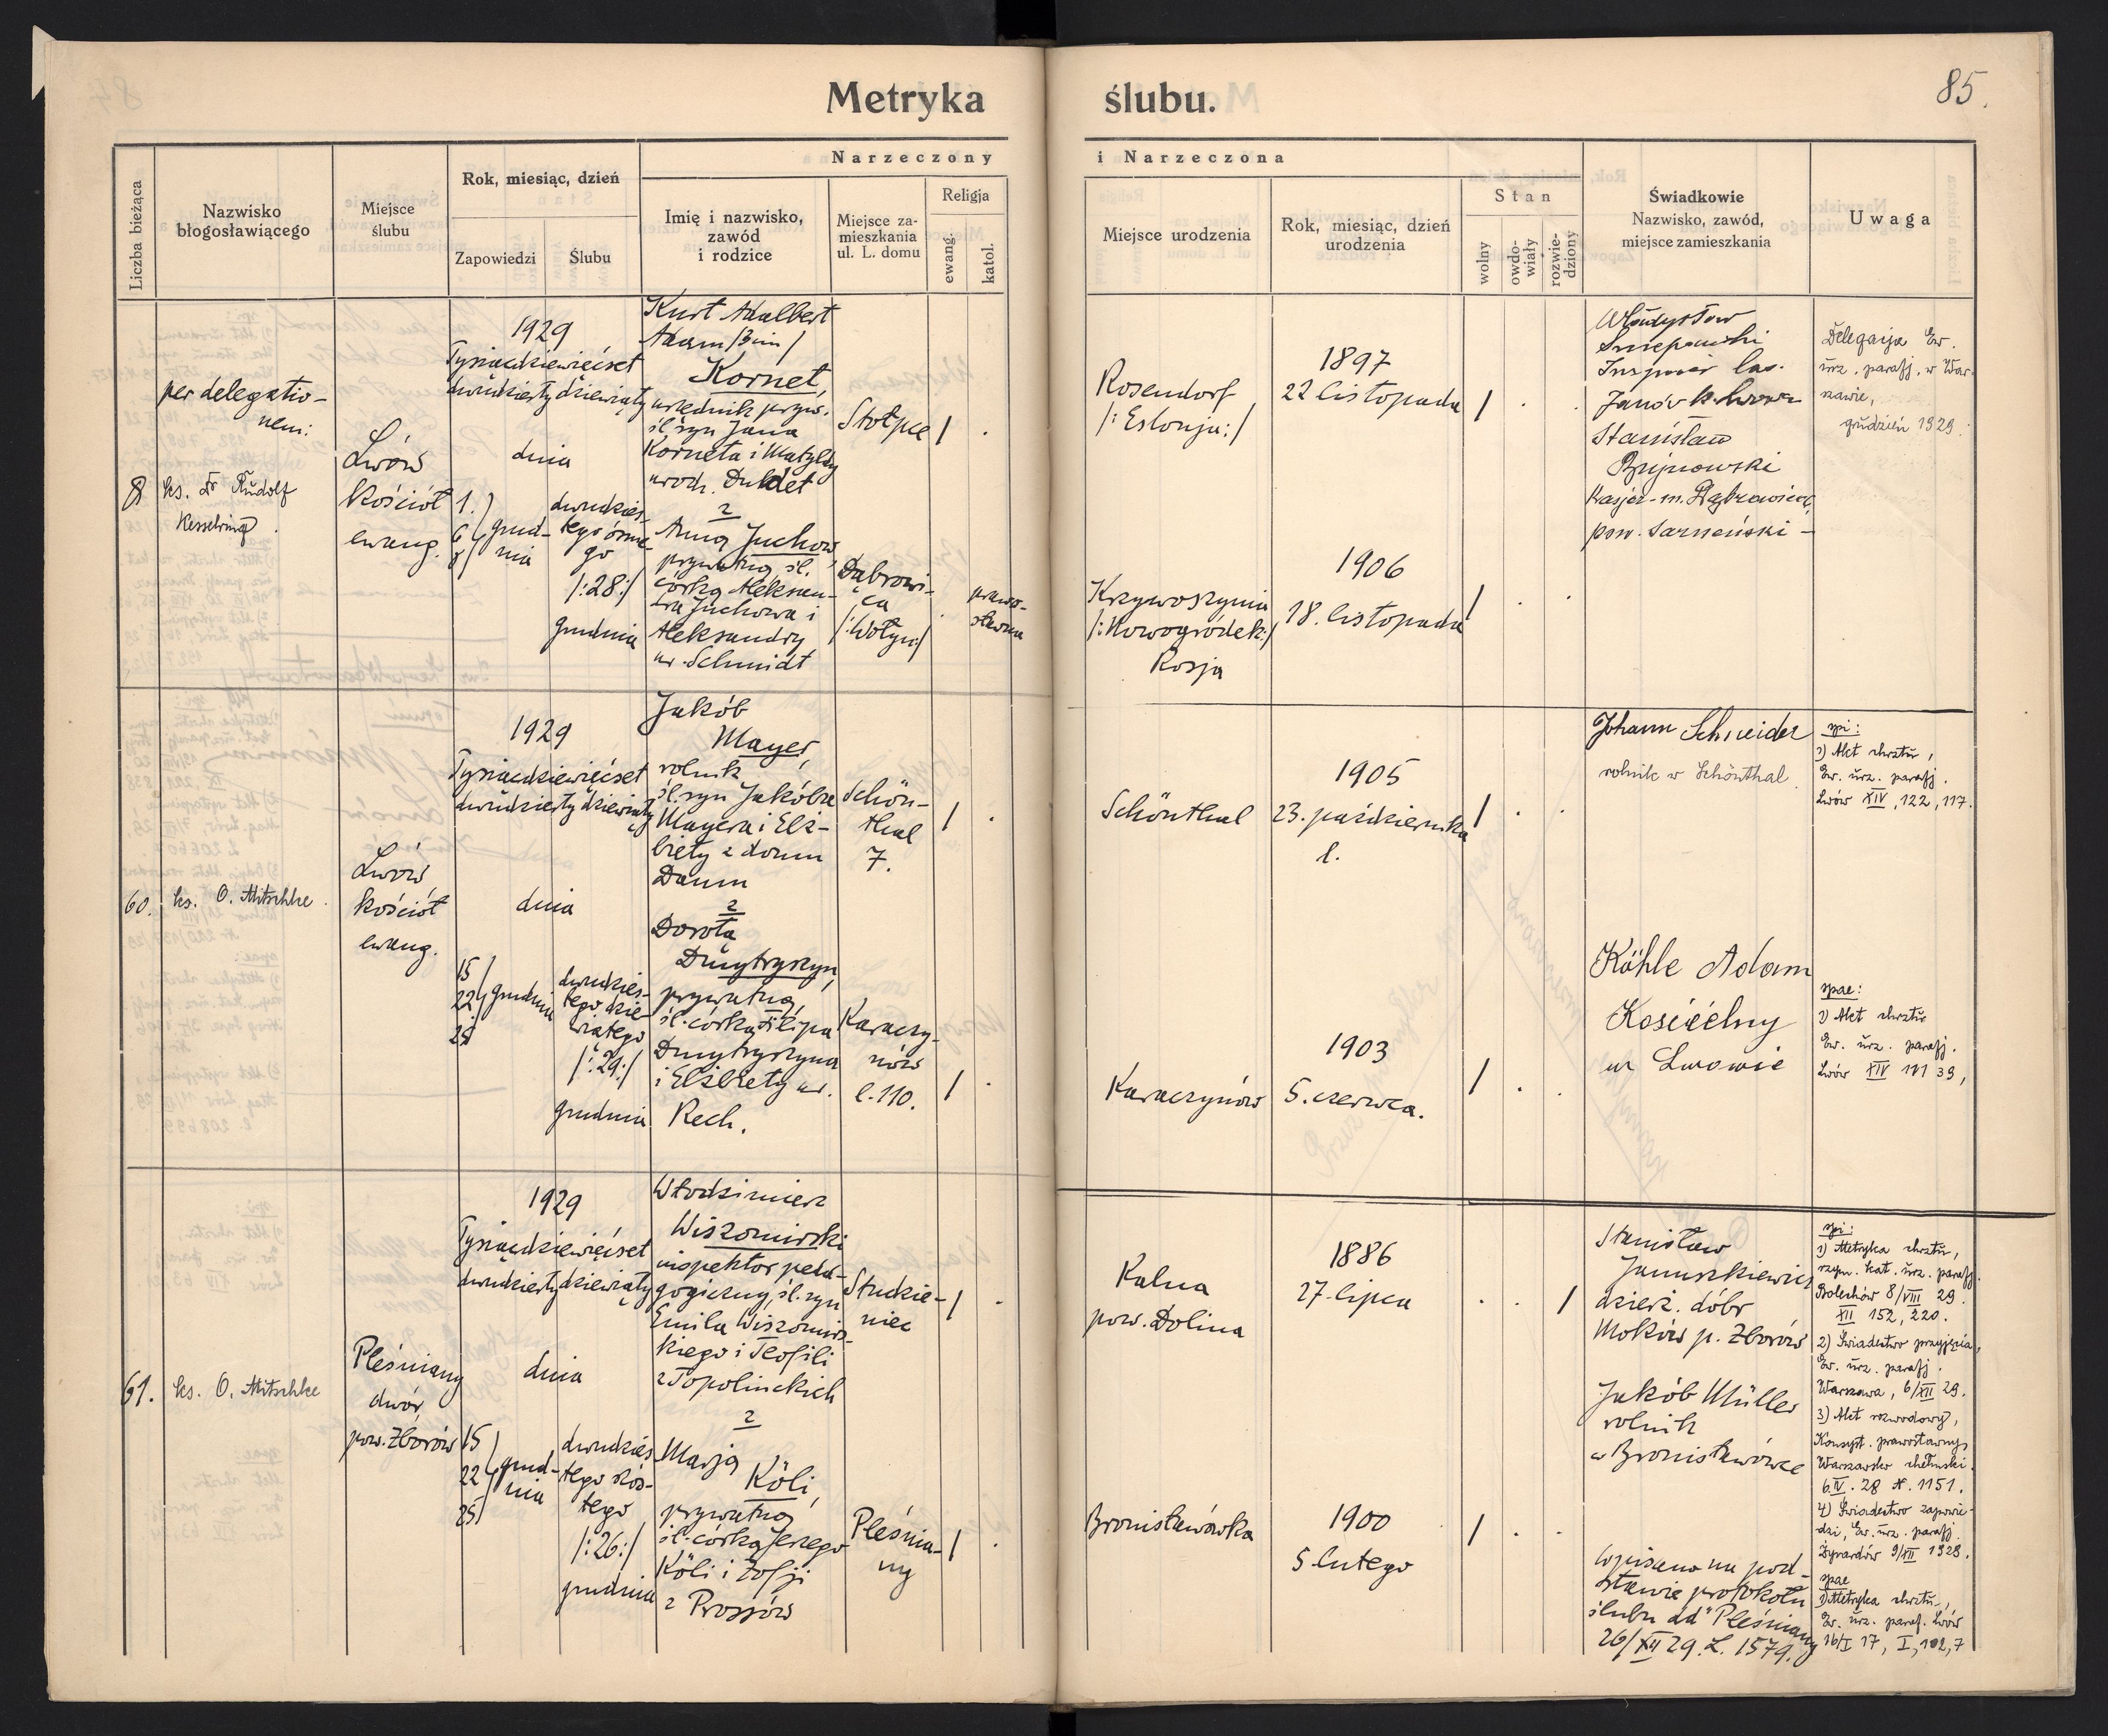 Metryka ślubu.
85.
Liczba bieżąca
Nazwisko
błogosławiącego
Miejsce
ślubu
Rok, miesiąc, dzień
Zapowiedzi
Ślubu
Narzeczony
Imię i nazwisko,
zawód
i rodzice
Miejsce za-
mieszkania
ul. L. domu
Religja
ewang.
katol.
i Narzeczona
Miejsce urodzenia
Rok, miesiąc, dzień
urodzenia
Stan
wolny
owdo-
wiały
rozwie-
dziony
Świadkowie
Nazwisko, zawód,
miejsce zamieszkania
Uwaga
8
per delegatio-
nem:
ks. Dr Rudolf
Kesselring.
Lwów
kościół
ewang.
1929
Tysiącdziewięćset
dwudziesty dziewiąty
dnia
1.
6
8
grud-
nia
dwudzies-
tego ósme-
go
/:28:/
grudnia
Kurt Adalbert
Adam /3 im/
Kornet,
urzędnik pryw.
śl. syn Jana
Korneta i Matyldy
urodz.
z
Anną Juchow,
prywatną śl.
córką Aleksan-
dra Juchowa i
Aleksandry
ur. Schmidt
Stołpce
Dąbrowi-
ca
/:Wołyń:/
/ .
. prawo-
sławna
Rosendorf
/:Estonja:/
1897
22 listopada
/ . .
Krzywoszynia
/:Nowogródek:/
Rosja
1906
18. listopada
/ . .
Władysław
las.
Janów k. Lwowa
Stanisław
Kasjer - m. Dąbrowica,
pow. Sarneński -
Delegacja Ew.
urz. parafj. w War-
szawie,
grudzień 1929.
60.
ks. O. Mitschke.
Lwów
kościół
ewang.
1929
Tysiącdziewięćset
dwudziesty dziewiąty
dnia
15
22
25
grudnia
dwudzies-
tego dzie-
wiątego
/:29:/
grudnia
Jakób
Mayer,
rolnik
śl. syn Jakóba
Mayera i Elż-
biety z domu
Daum
z
Dorotą
Dmytryszyn,
prywatną,
śl. córką Filipa
Dmytryszyna
i Elżbiety ur.
Rech.
Schön-
thal
7.
Karaczy-
nów
l. 110.
/ .
/ .
Schönthal
1905
23. października
l.
/ . .
Karaczynów
1903
5. czerwca.
/ . .
Johann Schneider
rolnik w Schönthal.
Köhle Adam
Kościelny
we Lwowie
spi:
1) Akt chrztu,
Ew. urz. parafj.
Lwów XIV, 122, 117.
spae:
1) Akt chrztu
Ew. urz. parafj.
Lwów XIV 101 39,
61.
ks. O. Mitschke
Pleśniany
dwór,
pow. Zborów
1929
Tysiącdziewięćset
dwudziesty dziewiąty
dnia
15
22
25
grud-
nia
dwudzies-
tego szós-
tego
/:26:/
grudnia
Włodzimierz
Wiszomirski
inspektor peda-
gogiczny, śl. syn
Emila Wiszomirs-
kiego i Teofili
z Topolinckich
z
Marją
Köli,
prywatną
śl. córką Jerzego
Köli i Zofji
z Prossów
Studzie-
niec
Pleśnia-
ny
/ .
/ .
Kalna
pow. Dolina
1886
27. lipca
. . /
Bronisławówka
1900
5 lutego
/ . .
Stanisław
Januszkiewicz
dzierż. dóbr
Moków p. Zborów
Jakób Müller
rolnik
w Bronisławówce
Wpisano na pod-
stawie protokołu
ślubu dd° Pleśniany
26/XII 29. L. 1579.
spi:
1) Metryka chrztu,
rzym. kat. urz. parafj.
Bolechów 8/VIII 29.
XII 152, 220.
2) Świadectwo przyjęcia,
Ew. urz. parafj.
Warszawa, 6/XII 29.
3) Akt rozwodowy,
Konsyst. prawosławny,
Warszawsko chełmski.
6 IV. 28 N. 1151.
4) Świadectwo zapowie-
dzi, Ew. urz. parafj.
Żyrardów 9/XII 1928.
spae
1) Metryka chrztu,
Ew. urz. paraf. Lwów
16/I 17, I, 102, 7